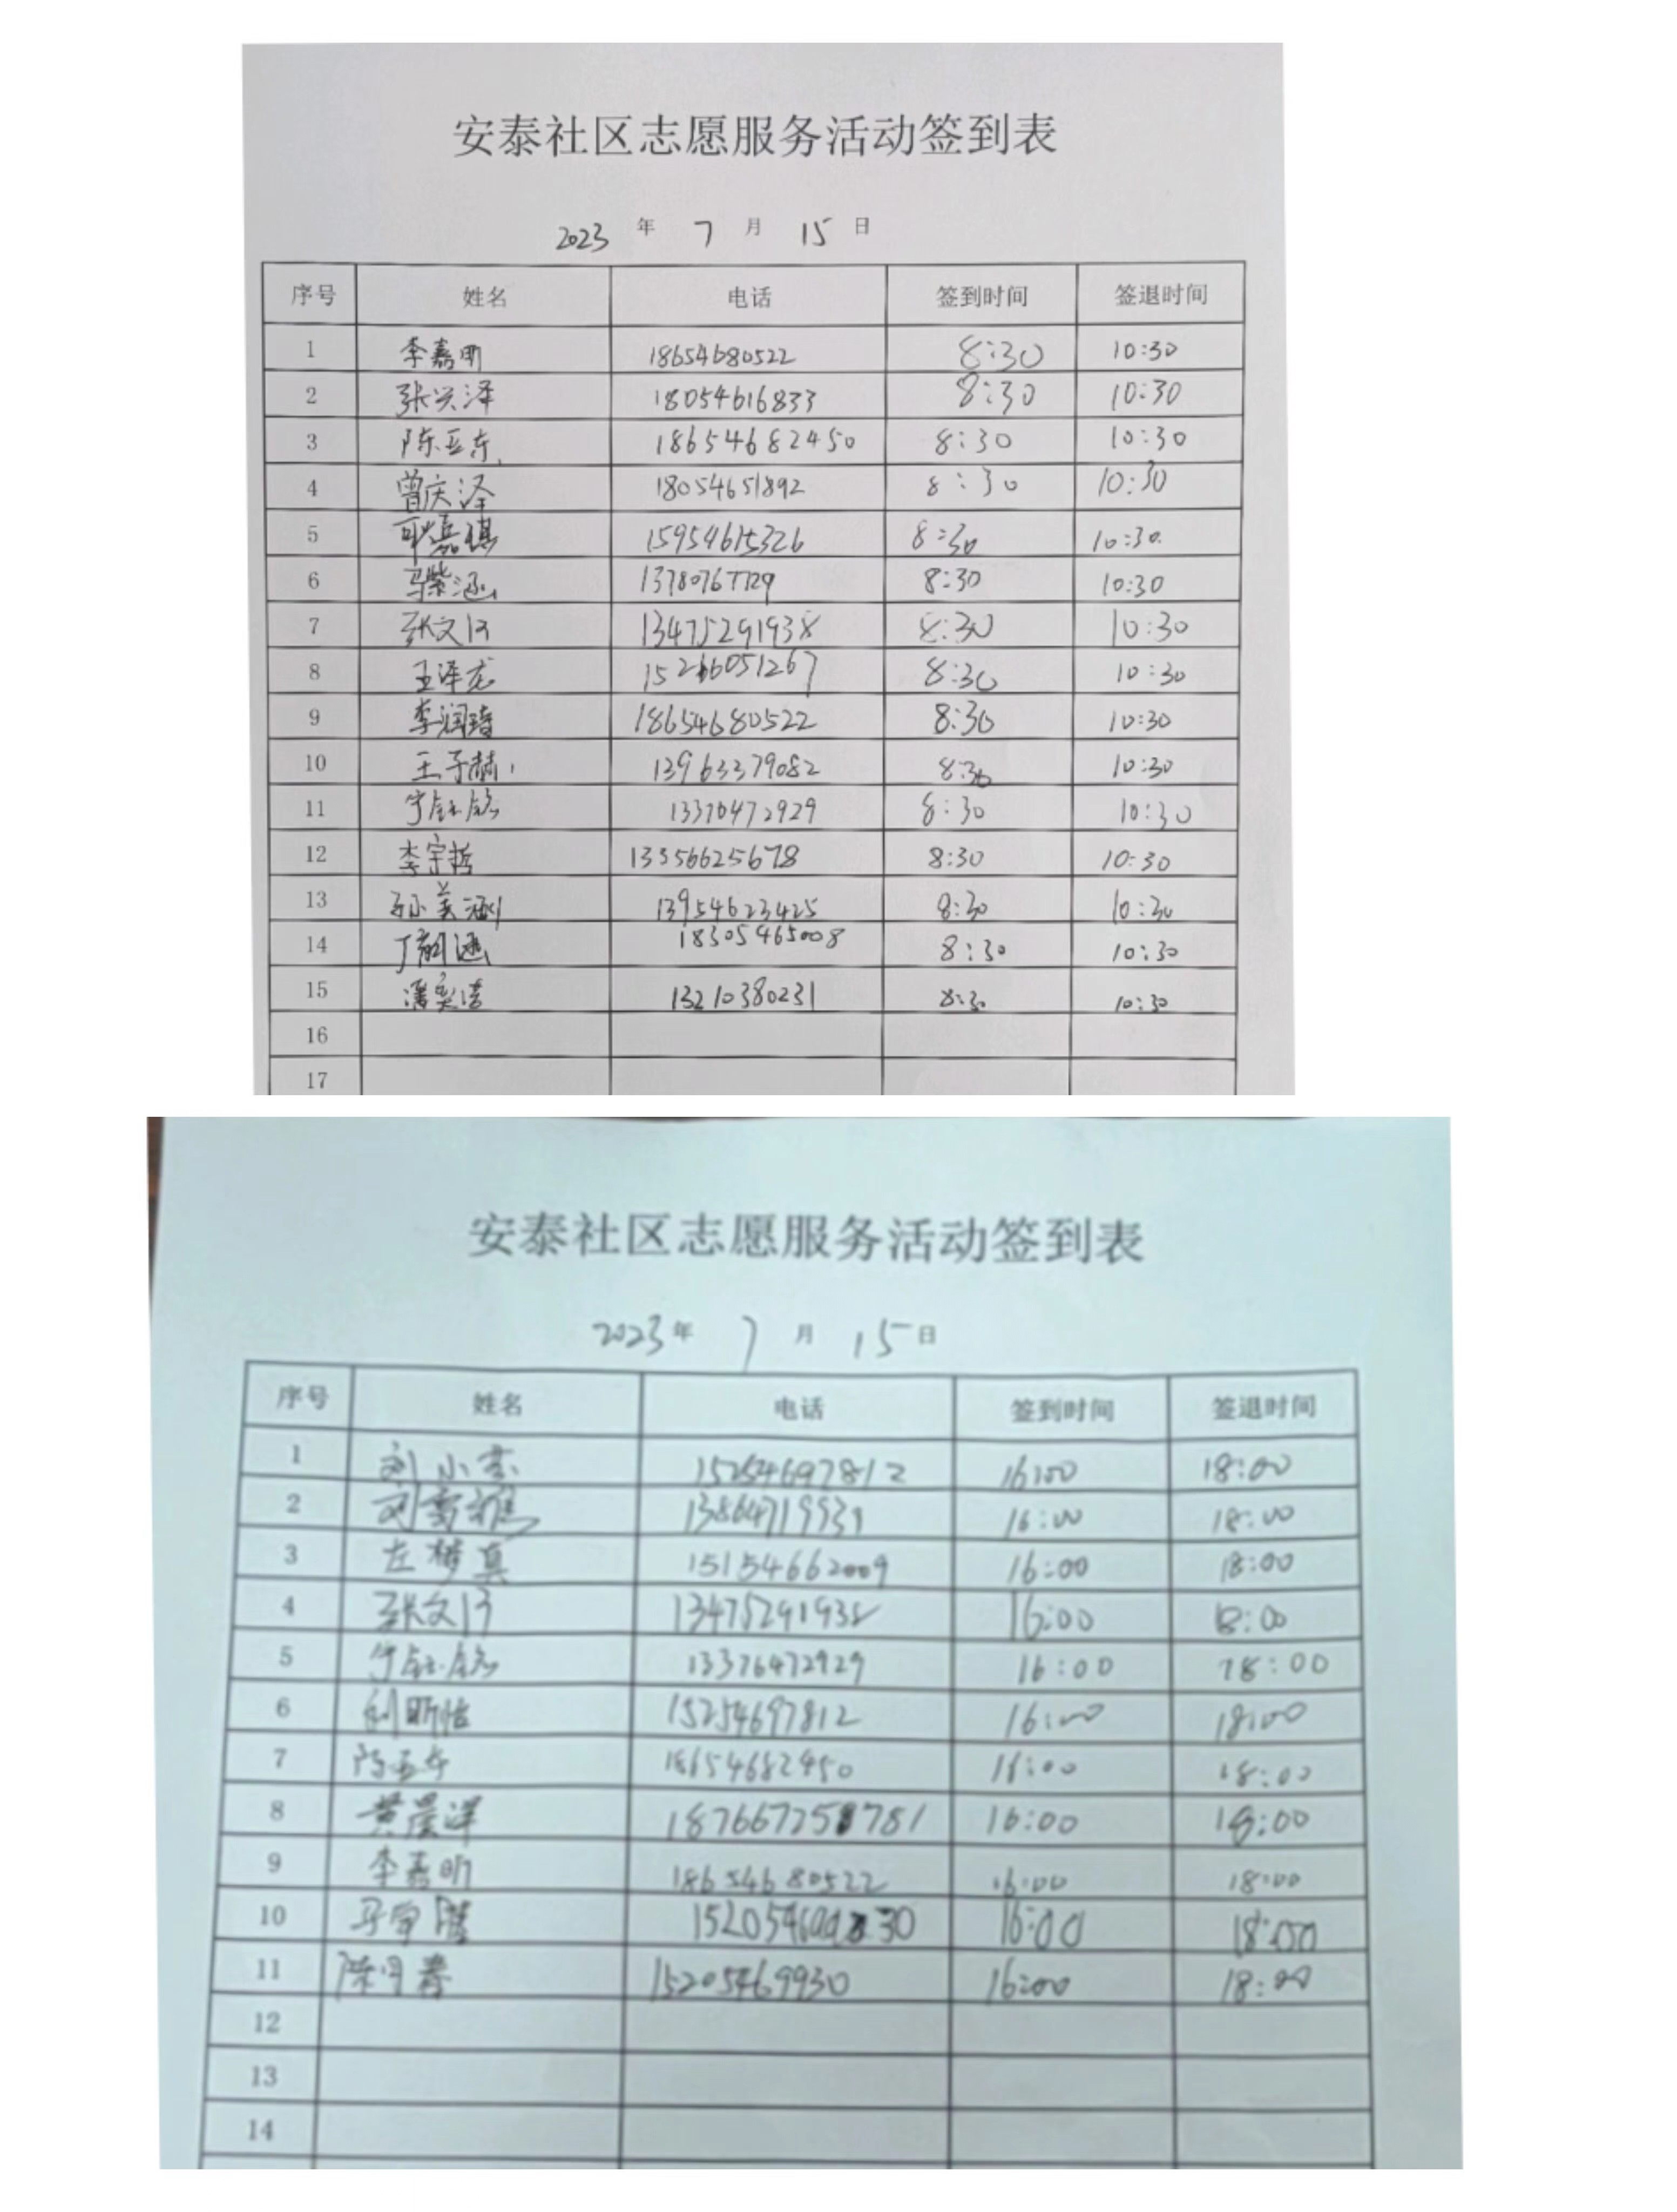 安泰社区志愿服务活动签到表
2023 年 7 月 15 日
序号 姓名 电话 签到时间 签退时间
1 李嘉昕 18654680522 8:30 10:30
2 张兴泽 18054616833 8:30 10:30
3 陈亚东 18654682450 8:30 10:30
4 曾庆泽 18054651892 8:30 10:30
5 15954615326 8:30 10:30
6 马紫涵 8:30 10:30
7 张文 13475291938 8:30 10:30
8 王泽龙 15266051267 8:30 10:30
9 李润琦 18654680522 8:30 10:30
10 王子赫 13963379082 8:30 10:30
11 13370472929 8:30 10:30
12 李宗哲 8:30 10:30
13 孙美涵 13954623425 8:30 10:30
14 丁 涵 18305465008 8:30 10:30
15 潘奕洁 13210380231 8:30 10:30
16
17
安泰社区志愿服务活动签到表
2023 年 7 月 15 日
序号 姓名 电话 签到时间 签退时间
1 刘小 15254697812 16:00 18:00
2 刘 16:00 18:00
3 左梦真 15154662009 16:00 18:00
4 张文 13475291938 16:00 18:00
5 16:00 18:00
6 刘昕怡 15254697812 16:00 18:00
7 陈亚东 18654682450 16:00 18:00
8 黄晨洋 16:00 18:00
9 李嘉昕 18654680522 16:00 18:00
10 马 16:00 18:00
11 陈 15205469930 16:00 18:00
12
13
14